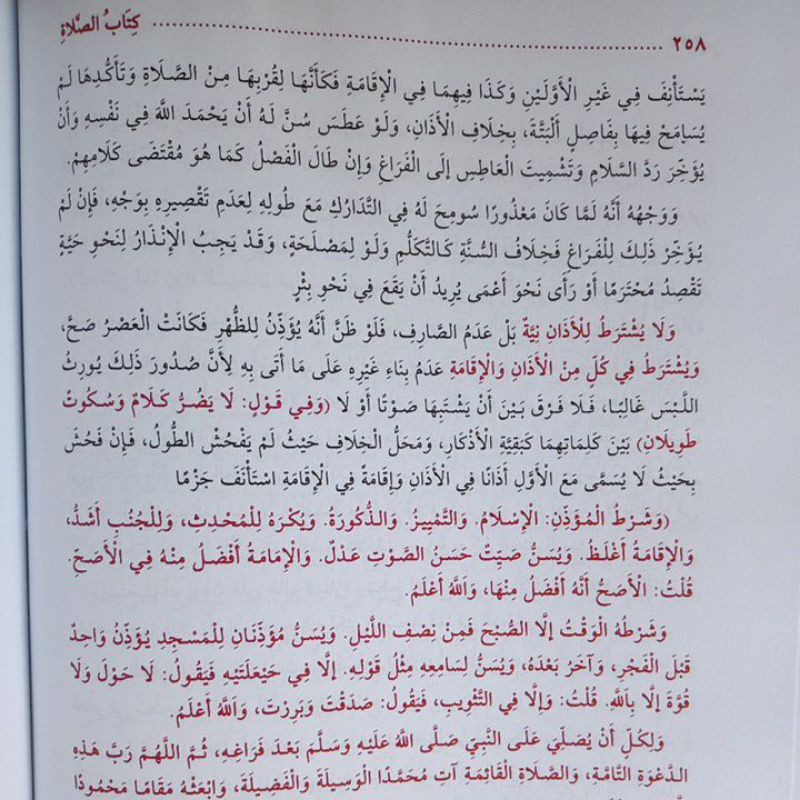 ٢٥٨ ........ كِتَابُ الصَّلَاةِ
يَسْتَأْنِفَ فِي غَيْرِ الْأَوَّلَيْنِ وَكَذَا فِيهِمَا فِي الْإِقَامَةِ فَكَأَنَّهَا لِقُرْبِهَا مِنْ الصَّلَاةِ وَتَأَكُّدِهَا لَمْ
يُسَامَحْ فِيهَا بِفَاصِلٍ أَلْبَتَّةَ، بِخِلَافِ الْأَذَانِ، وَلَوْ عَطَسَ سُنَّ لَهُ أَنْ يَحْمَدَ اللَّهَ فِي نَفْسِهِ وَأَنْ
يُؤَخِّرَ رَدَّ السَّلَامِ وَتَشْمِيتَ الْعَاطِسِ إلَى الْفَرَاغِ وَإِنْ طَالَ الْفَصْلُ كَمَا هُوَ مُقْتَضَى كَلَامِهِمْ.
وَوَجْهُهُ أَنَّهُ لَمَّا كَانَ مَعْذُورًا سُومِحَ لَهُ فِي التَّدَارُكِ مَعَ طُولِهِ لِعَدَمِ تَقْصِيرِهِ بِوَجْهٍ، فَإِنْ لَمْ
يُؤَخِّرْ ذَلِكَ لِلْفَرَاغِ فَخِلَافُ السُّنَّةِ كَالتَّكَلُّمِ وَلَوْ لِمَصْلَحَةٍ، وَقَدْ يَجِبُ الْإِنْذَارُ لِنَحْوِ حَيَّةٍ
تَقْصِدُ مُحْتَرَمًا أَوْ رَأَى نَحْوَ أَعْمَى يُرِيدُ أَنْ يَقَعَ فِي نَحْوِ بِئْرٍ
وَلَا يُشْتَرَطُ لِلْأَذَانِ نِيَّةٌ بَلْ عَدَمُ الصَّارِفِ، فَلَوْ ظَنَّ أَنَّهُ يُؤَذِّنُ لِلظُّهْرِ فَكَانَتْ الْعَصْرُ صَحَّ،
وَيُشْتَرَطُ فِي كُلٍّ مِنْ الْأَذَانِ وَالْإِقَامَةِ عَدَمُ بِنَاءِ غَيْرِهِ عَلَى مَا أَتَى بِهِ لِأَنَّ صُدُورَ ذَلِكَ يُورِثُ
اللَّبْسَ غَالِبًا، فَلَا فَرْقَ بَيْنَ أَنْ يَشْتَبِهَا صَوْتًا أَوْ لَا (وَفِي قَوْلٍ: لَا يَضُرُّ كَلَامٌ وَسُكُوتٌ
طَوِيلَانِ) بَيْنَ كَلِمَاتِهِمَا كَبَقِيَّةِ الْأَذْكَارِ، وَمَحَلُّ الْخِلَافِ حَيْثُ لَمْ يَفْحُشْ الطُّولُ، فَإِنْ فَحُشَ
بِحَيْثُ لَا يُسَمَّى مَعَ الْأَوَّلِ أَذَانًا فِي الْأَذَانِ وَإِقَامَةً فِي الْإِقَامَةِ اسْتَأْنَفَ جَزْمًا
(وَشَرْطُ الْمُؤَذِّنِ: الْإِسْلَامُ. وَالتَّمْيِيزُ. وَالذُّكُورَةُ. وَيُكْرَهُ لِلْمُحْدِثِ، وَلِلْجُنُبِ أَشَدُّ،
وَالْإِقَامَةُ أَغْلَظُ. وَيُسَنُّ صَيِّتٌ حَسَنُ الصَّوْتِ عَدْلٌ. وَالْإِمَامَةُ أَفْضَلُ مِنْهُ فِي الْأَصَحِّ.
قُلْتُ: الْأَصَحُّ أَنَّهُ أَفْضَلُ مِنْهَا، وَاَللَّهُ أَعْلَمُ.
وَشَرْطُهُ الْوَقْتُ إلَّا الصُّبْحَ فَمِنْ نِصْفِ اللَّيْلِ. وَيُسَنُّ مُؤَذِّنَانِ لِلْمَسْجِدِ يُؤَذِّنُ وَاحِدٌ
قَبْلَ الْفَجْرِ، وَآخَرُ بَعْدَهُ، وَيُسَنُّ لِسَامِعِهِ مِثْلُ قَوْلِهِ. إلَّا فِي حَيْعَلَتَيْهِ فَيَقُولُ: لَا حَوْلَ وَلَا
قُوَّةَ إلَّا بِاَللَّهِ. قُلْتُ: وَإِلَّا فِي التَّثْوِيبِ، فَيَقُولُ: صَدَقْتَ وَبَرِرْتَ، وَاَللَّهُ أَعْلَمُ.
وَلِكُلٍّ أَنْ يُصَلِّيَ عَلَى النَّبِيِّ صَلَّى اللَّهُ عَلَيْهِ وَسَلَّمَ بَعْدَ فَرَاغِهِ، ثُمَّ اللَّهُمَّ رَبَّ هَذِهِ
الدَّعْوَةِ التَّامَّةِ، وَالصَّلَاةِ الْقَائِمَةِ آتِ مُحَمَّدًا الْوَسِيلَةَ وَالْفَضِيلَةَ، وَابْعَثْهُ مَقَامًا مَحْمُودًا